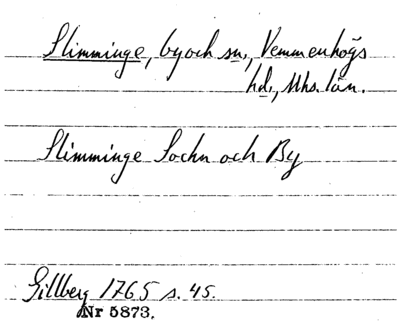 Slimminge, by och sn., Vemmenhögs
hd., Mhs. län.
Slimminge Sochn och By
Gillberg 1765 s. 45.
Nr 5873.